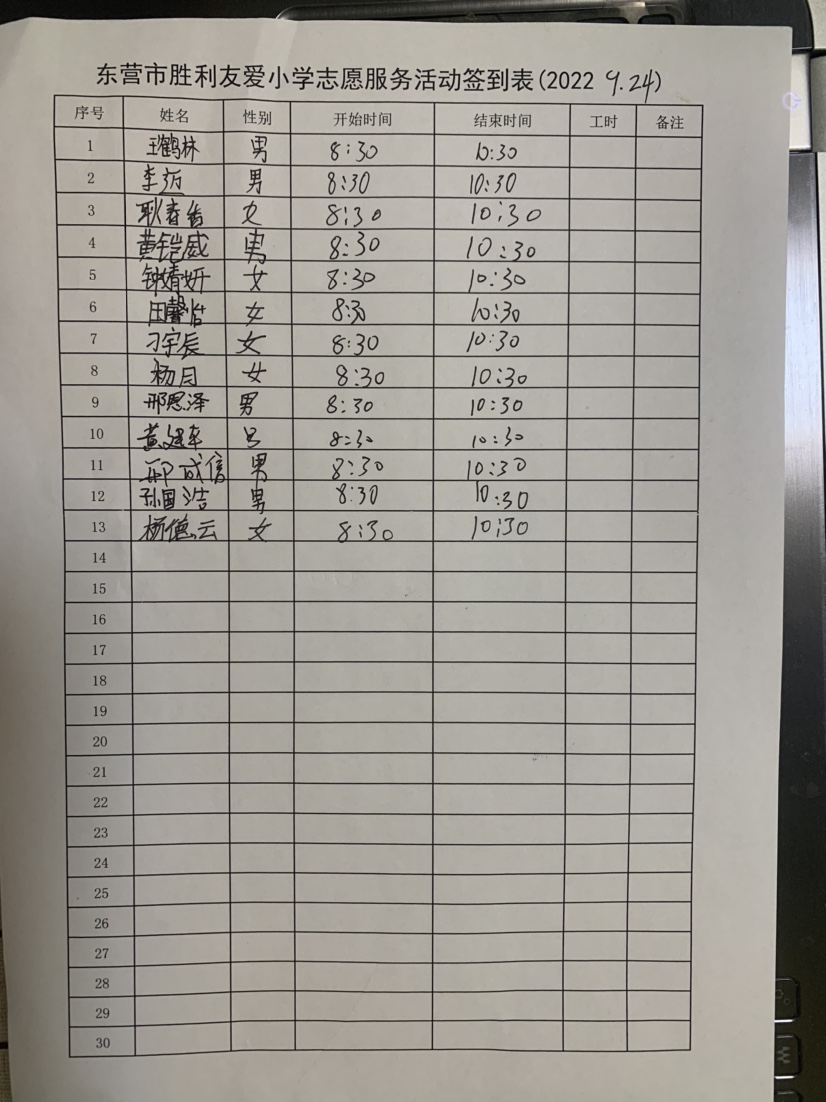 东营市胜利友爱小学志愿服务活动签到表(2022 9.24)
序号 姓名 性别 开始时间 结束时间 工时 备注
1 王鹤林 男 8:30 10:30
2 李 男 8:30 10:30
3 耿春 女 8:30 10:30
4 黄铠威 男 8:30 10:30
5 钟婧妍 女 8:30 10:30
6 田馨怡 女 8:30 10:30
7 刁宇辰 女 8:30 10:30
8 杨月 女 8:30 10:30
9 邢恩泽 男 8:30 10:30
10 黄建 8:30 10:30
11 邢成信 男 8:30 10:30
12 孙国浩 男 8:30 10:30
13 杨德云 女 8:30 10:30
14
15
16
17
18
19
20
21
22
23
24
25
26
27
28
29
30